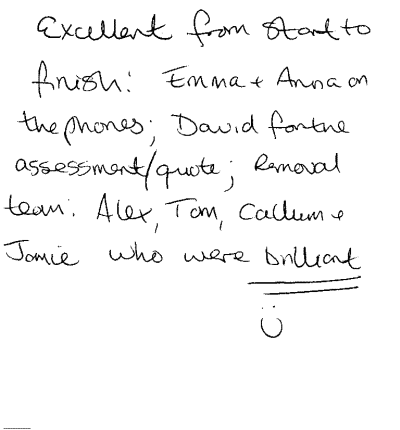 Excellent from start to
finish: Emma + Anna on
the phones; David for the
assessment/quote; Removal
team: Alex, Tom, Callum +
Jamie who were brilliant